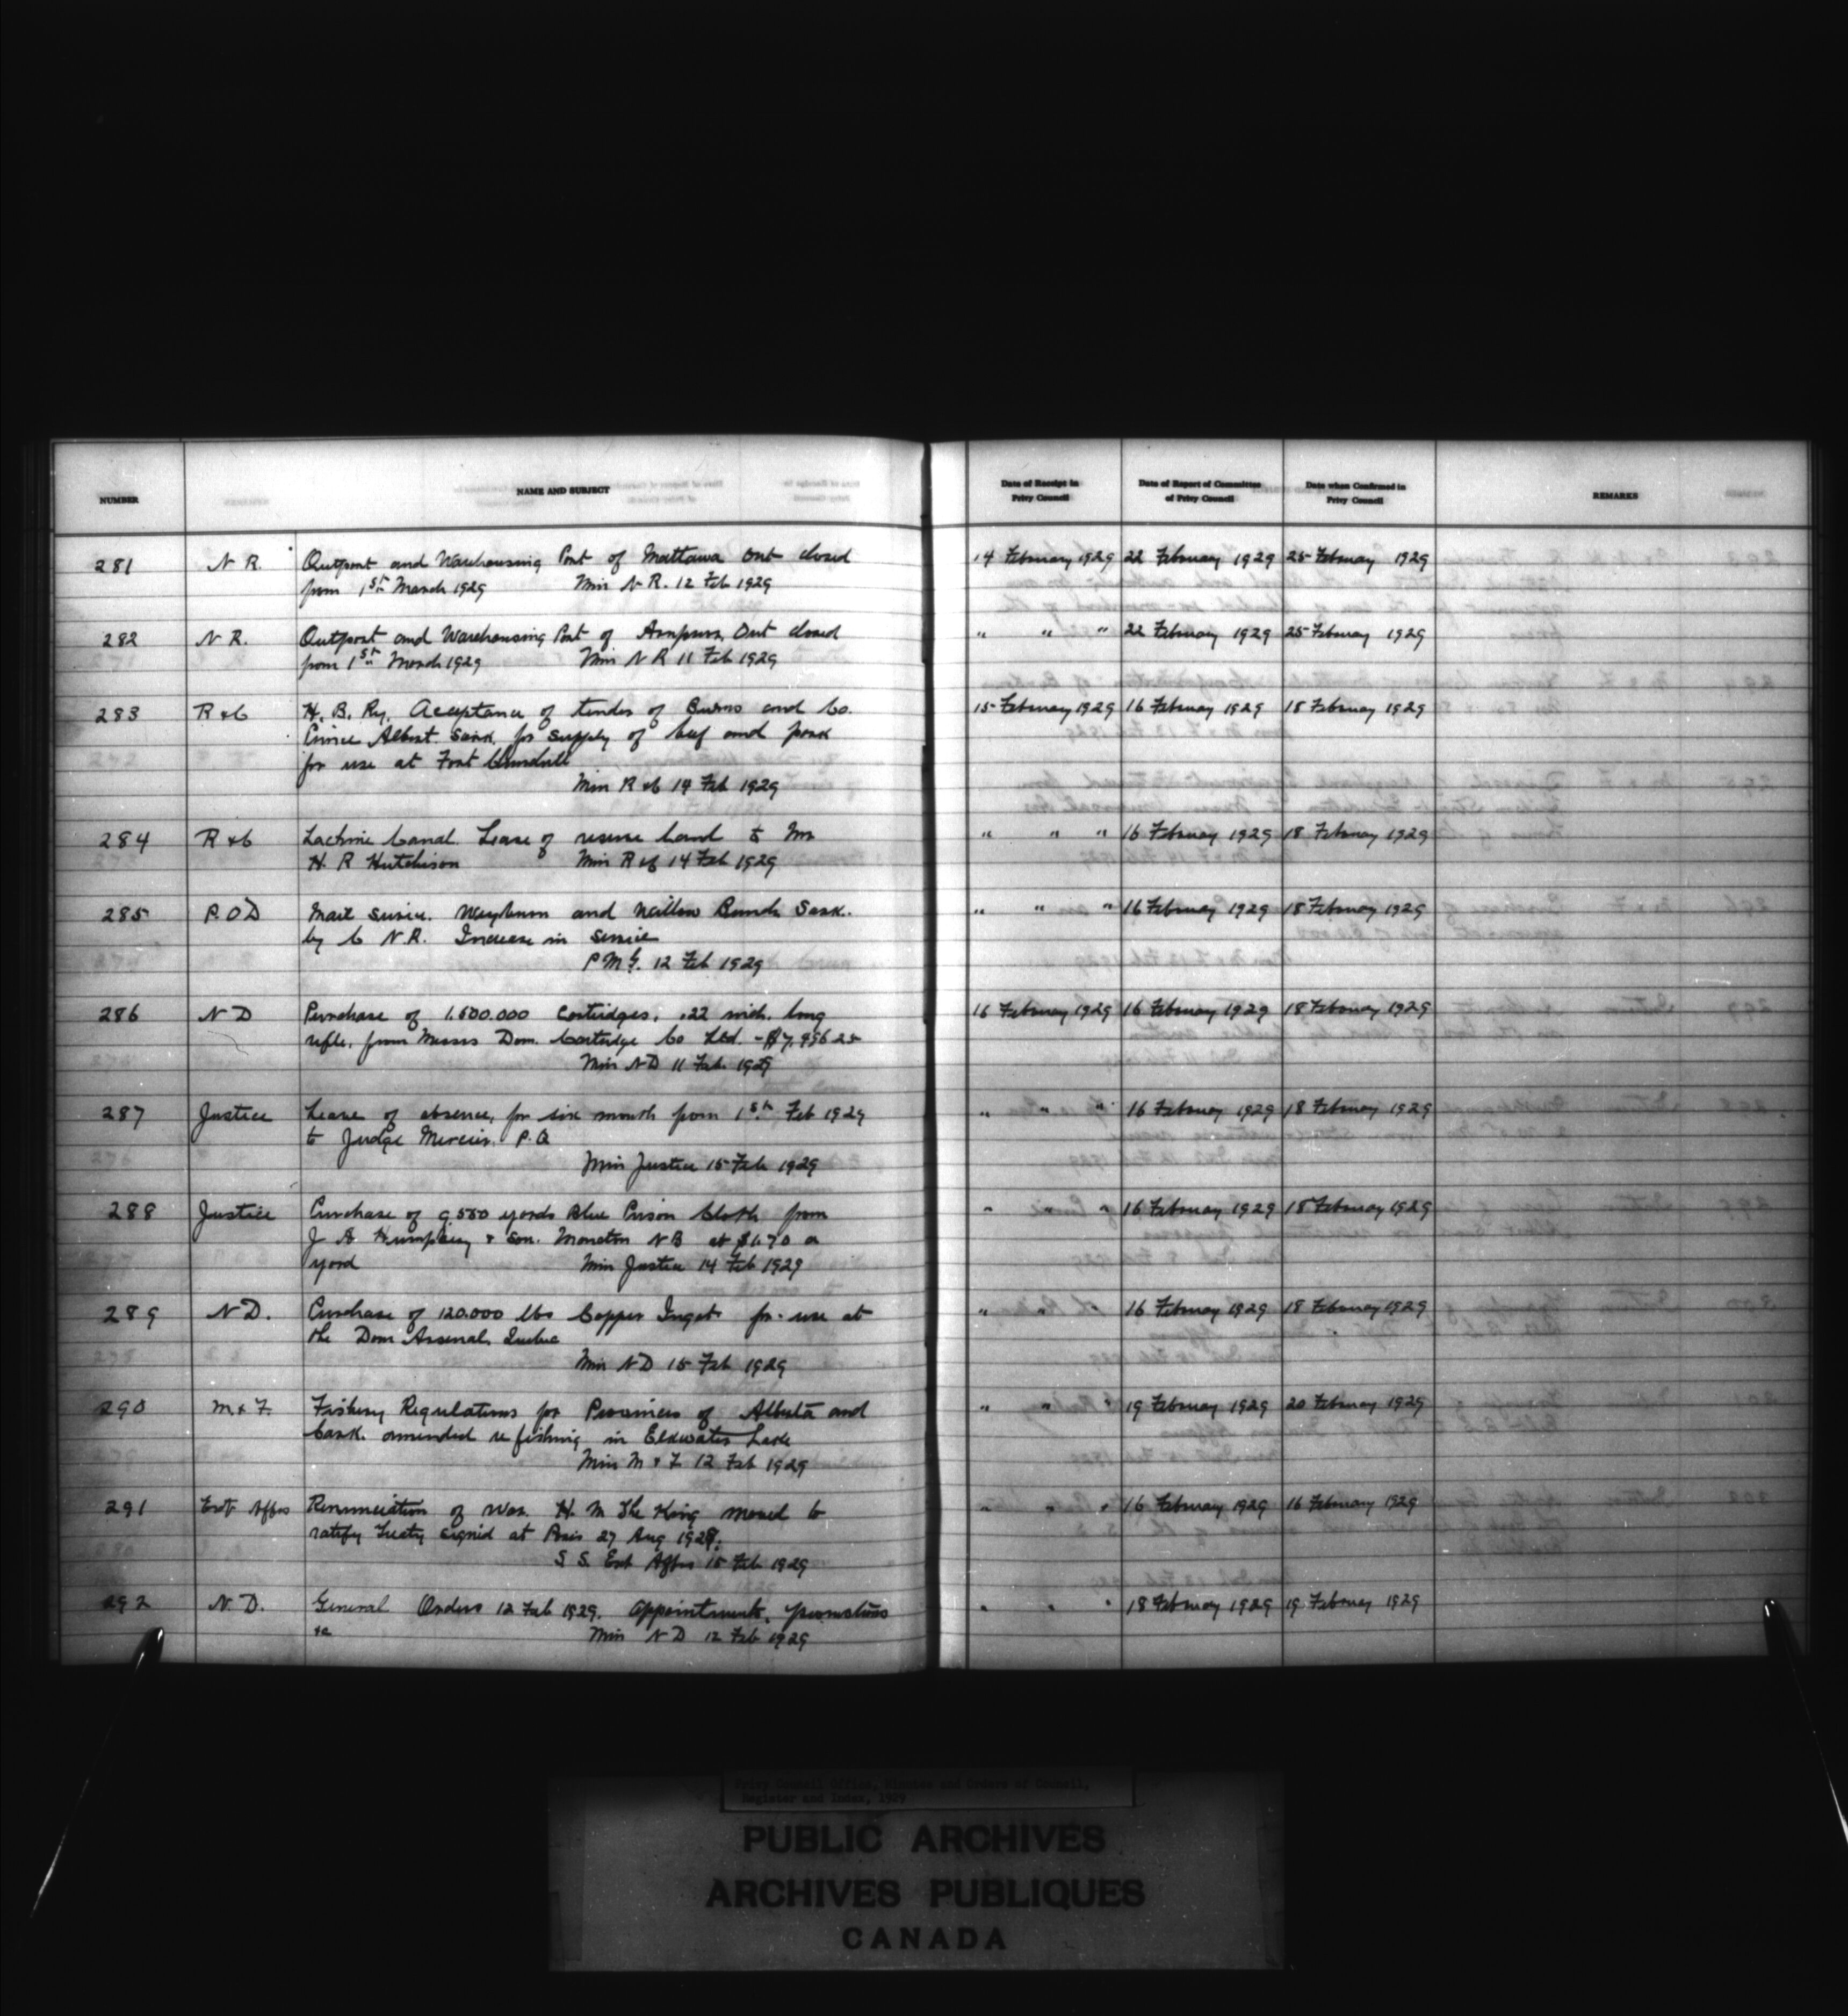 NUMBER NAME AND SUBJECT Date of Receipt in Privy Council Date of Report of Committee of Privy Council Date when Confirmed in Privy Council REMARKS
281 N R. Outport and Warehousing Port of Mattawa Ont closed 14 February 1929 22 February 1929 25 February 1929
from 1st March 1929 Min N R. 12 Feb 1929
282 N R. Outport and Warehousing Port of Arnprior, Ont closed " " " 22 February 1929 25 February 1929
from 1st March 1929 Min N R 11 Feb 1929
283 R & C H. B. Ry. Acceptance of tender of Burns and Co. 15 February 1929 16 February 1929 18 February 1929
Prince Albert. Sask, for supply of beef and pork
for use at Fort Churchill
Min R & C 14 Feb 1929
284 R & C Lachine Canal. Lease of reserve land to Mr " " " 16 February 1929 18 February 1929
H. R Hutchison Min R & C 14 Feb 1929
285 P. O D Mail service. Weyburn and Willow Bunch Sask. " " " 16 February 1929 18 February 1929
by C N.R. Increase in service
P M G. 12 Feb 1929
286 N D Purchase of 1.500.000 Cartridges, .22 inch. long 16 February 1929 16 February 1929 18 February 1929
rifle, from Messrs Dom. Cartridge Co Ltd.
Min N D 11 Feb. 1929
287 Justice Leave of absence, for six month from 1st Feb 1929 " " " 16 February 1929 18 February 1929
to Judge Mercier. P. Q
Min Justice 15 Feb 1929
288 Justice Purchase of 9,550 yards Blue Prison Cloth from " " " 16 February 1929 18 February 1929
J A Humphrey & Son. Moncton N B at $1.70 a
yard Min Justice 14 Feb 1929
289 N D. Purchase of 120.000 lbs Copper Ingots for use at " " " 16 February 1929 18 February 1929
the Dom Arsenal, Quebec
Min N D 15 Feb 1929
290 M. & F. Fishery Regulations for Provinces of Alberta and " " " 19 February 1929 20 February 1929
Sask. amended re fishing in Elkwater Lake
Min M & F 12 Feb 1929
291 Ext Affrs Renunciation of War. H. M The King moved to " " " 16 February 1929 16 February 1929
ratify Treaty signed at Paris 27 Aug 1928.
S S. Ext Affrs 15 Feb 1929
292 N. D. General Orders 12 Feb 1929. Appointments, promotions " " " 18 February 1929 19 February 1929
&c Min N D 12 Feb 1929
Privy Council Office, Minutes and Orders of Council,
Register and Index, 1929
PUBLIC ARCHIVES
ARCHIVES PUBLIQUES
CANADA